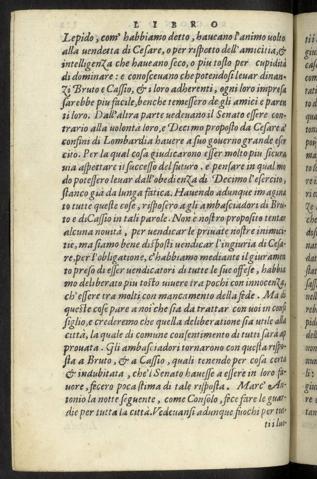 LIBRO
Lepido, com' habbiamo detto, haueano l'animo volto
alla vendetta di Cesare, o per rispetto dell'amicitia, &
intelligenza che haueano seco, o piu tosto per cupidità
di dominare: e conosceuano che potendosi leuar dinan-
zi Bruto e Cassio, & i loro adherenti, ogni loro impresa
sarebbe piu facile, benche temessero de gli amici e paren
ti loro. Dall'altra parte vedeuano il Senato essere con-
trario alla volonta loro, e Decimo proposto da Cesare a'
confini di Lombardia hauere a suo gouerno grande eser
cito. Per la qual cosa giudicarono esser molto piu sicura
via aspettare il successo del futuro, e pensare in qual mo
do potessero leuar dall'obedienza di Decimo l'esercito,
stanco già da lunga fatica. Hauendo adunque imagina
to tutte queste cose, risposero a gli ambasciadori di Bru-
to e di Cassio in tali parole. Non e nostro proposito tentar
alcuna nouità, per vendicar le priuate nostre inimici-
tie, ma siamo bene disposti vendicar l'ingiuria di Cesa-
re, per l'obligatione, c'habbiamo mediante il giuramen
to preso di esser vendicatori di tutte le sue offese, habbia
mo deliberato piu tosto viuere tra pochi con innocenza,
ch'essere tra molti con mancamento della fede. Ma di
queste cose pare a noi che sia da trattar con voi in consi
siglio, e crederemo che quella deliberatione sia vtile alla
città, la quale di comune consentimento di tutti sarà ap
prouata. Gli ambasciadori tornarono con questa rispo-
sta a Bruto, & a Cassio, quali tenendo per cosa certa
& indubitata, che'l Senato hauesse a essere in loro fa-
uore, fecero poca stima di tale risposta. Marc' An-
tonio la notte seguente, come Consolo, fece fare le guar-
die per tutta la città. Vedeuansi adunque fuochi per tut-
ti i luo-